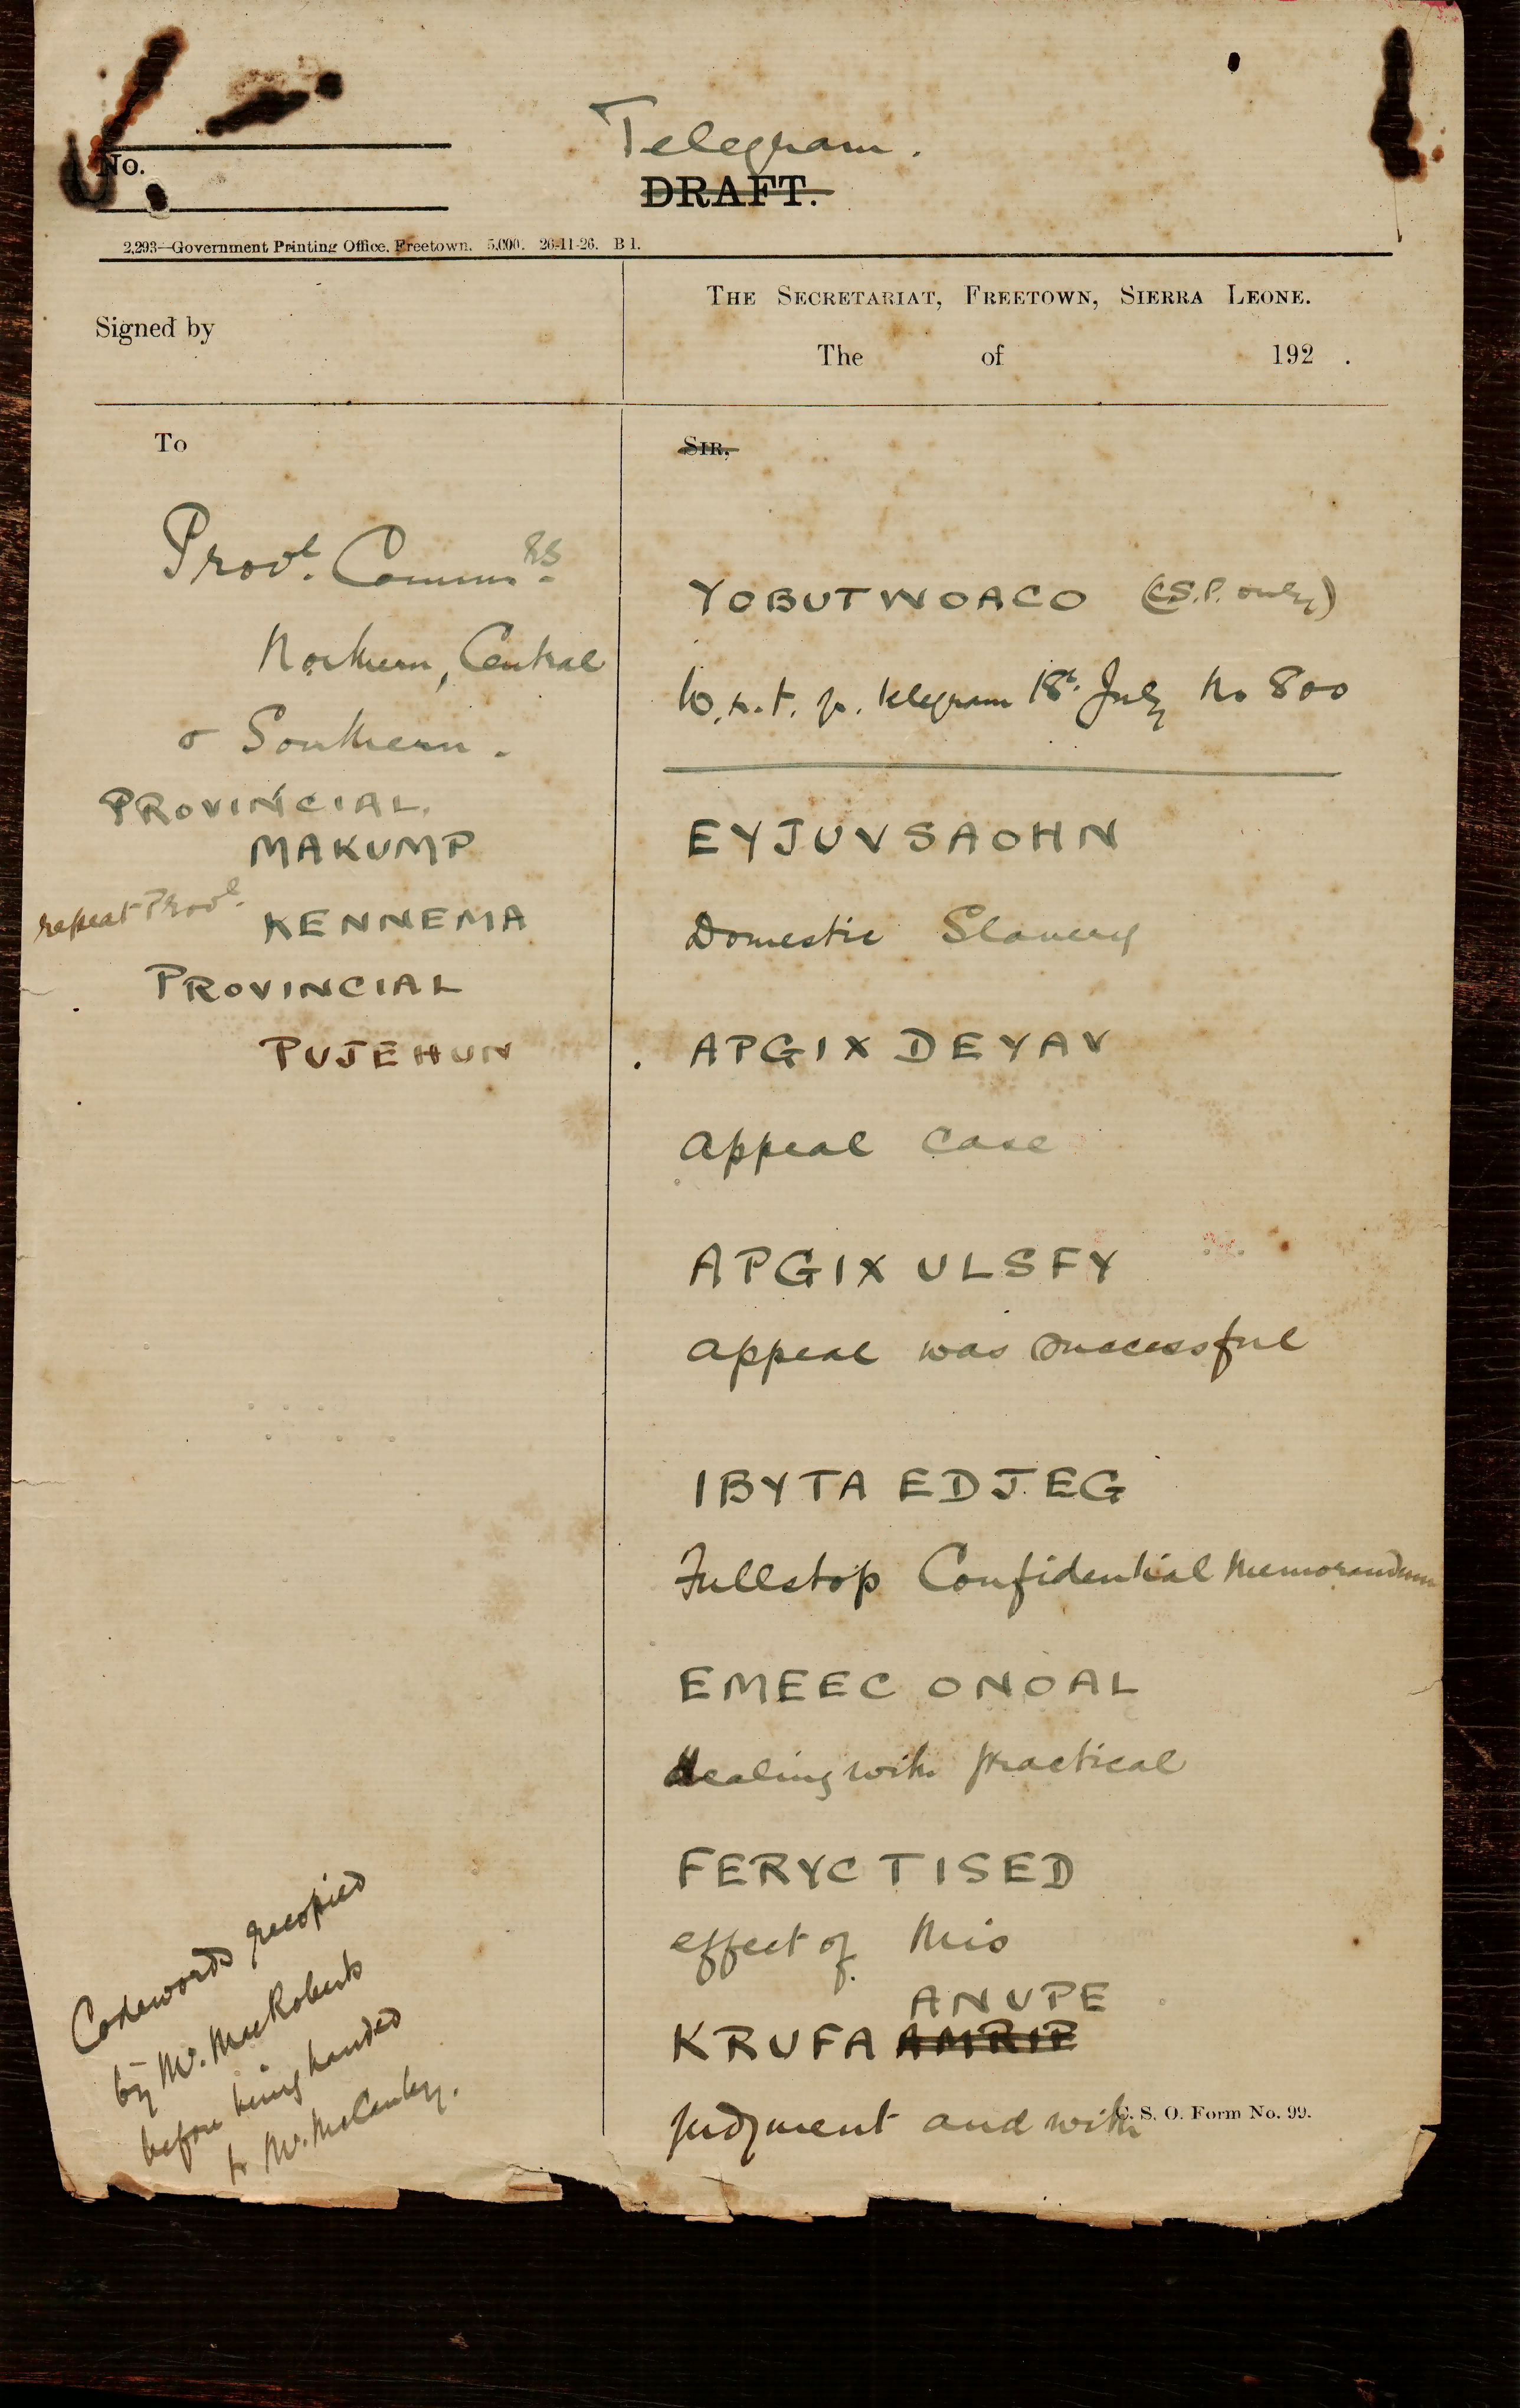 Telegram.
No.
DRAFT.
2,293—Government Printing Office, Freetown. 5,000. 26-11-26. B 1.
THE SECRETARIAT, FREETOWN, SIERRA LEONE.
Signed by
The of 192 .
To
SIR,
Provl. Commrs.
Northern, Central
& Southern.
PROVINCIAL.
MAKUMP
repeat Provl.
KENNEMA
PROVINCIAL
PUJEHUN
YOBUTWOACO (C.S.P. only)
W.r.t. telegram 18th July No 800
EYJUVSAOHN
Domestic Slavery
APGIX DEYAV
appeal case
APGIX ULSFY
appeal was successful
IBYTA EDJEG
Fullstop Confidential Memorandum
EMEEC ONOAL
dealing with practical
FERYC TISED
effect of this
ANUPE
KRUFA AMRIP
judgment and with
C. S. O. Form No. 99.
Codewords recopied
by Mr. MacRoberts
before being handed
to Mr. McCauley.